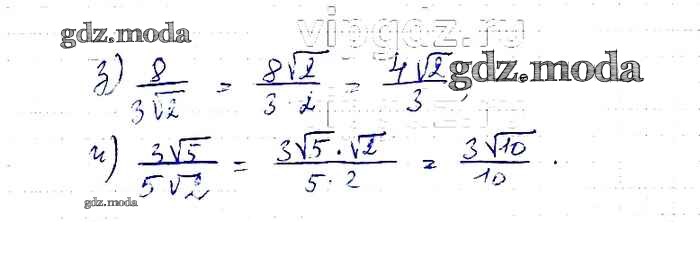 vipgdz.ru
gdz.moda
з) 8/(3√2) = 8√2/(3·2) = 4√2/3,
gdz.moda
и) 3√5/(5√2) = (3√5·√2)/(5·2) = 3√10/10.
gdz.moda